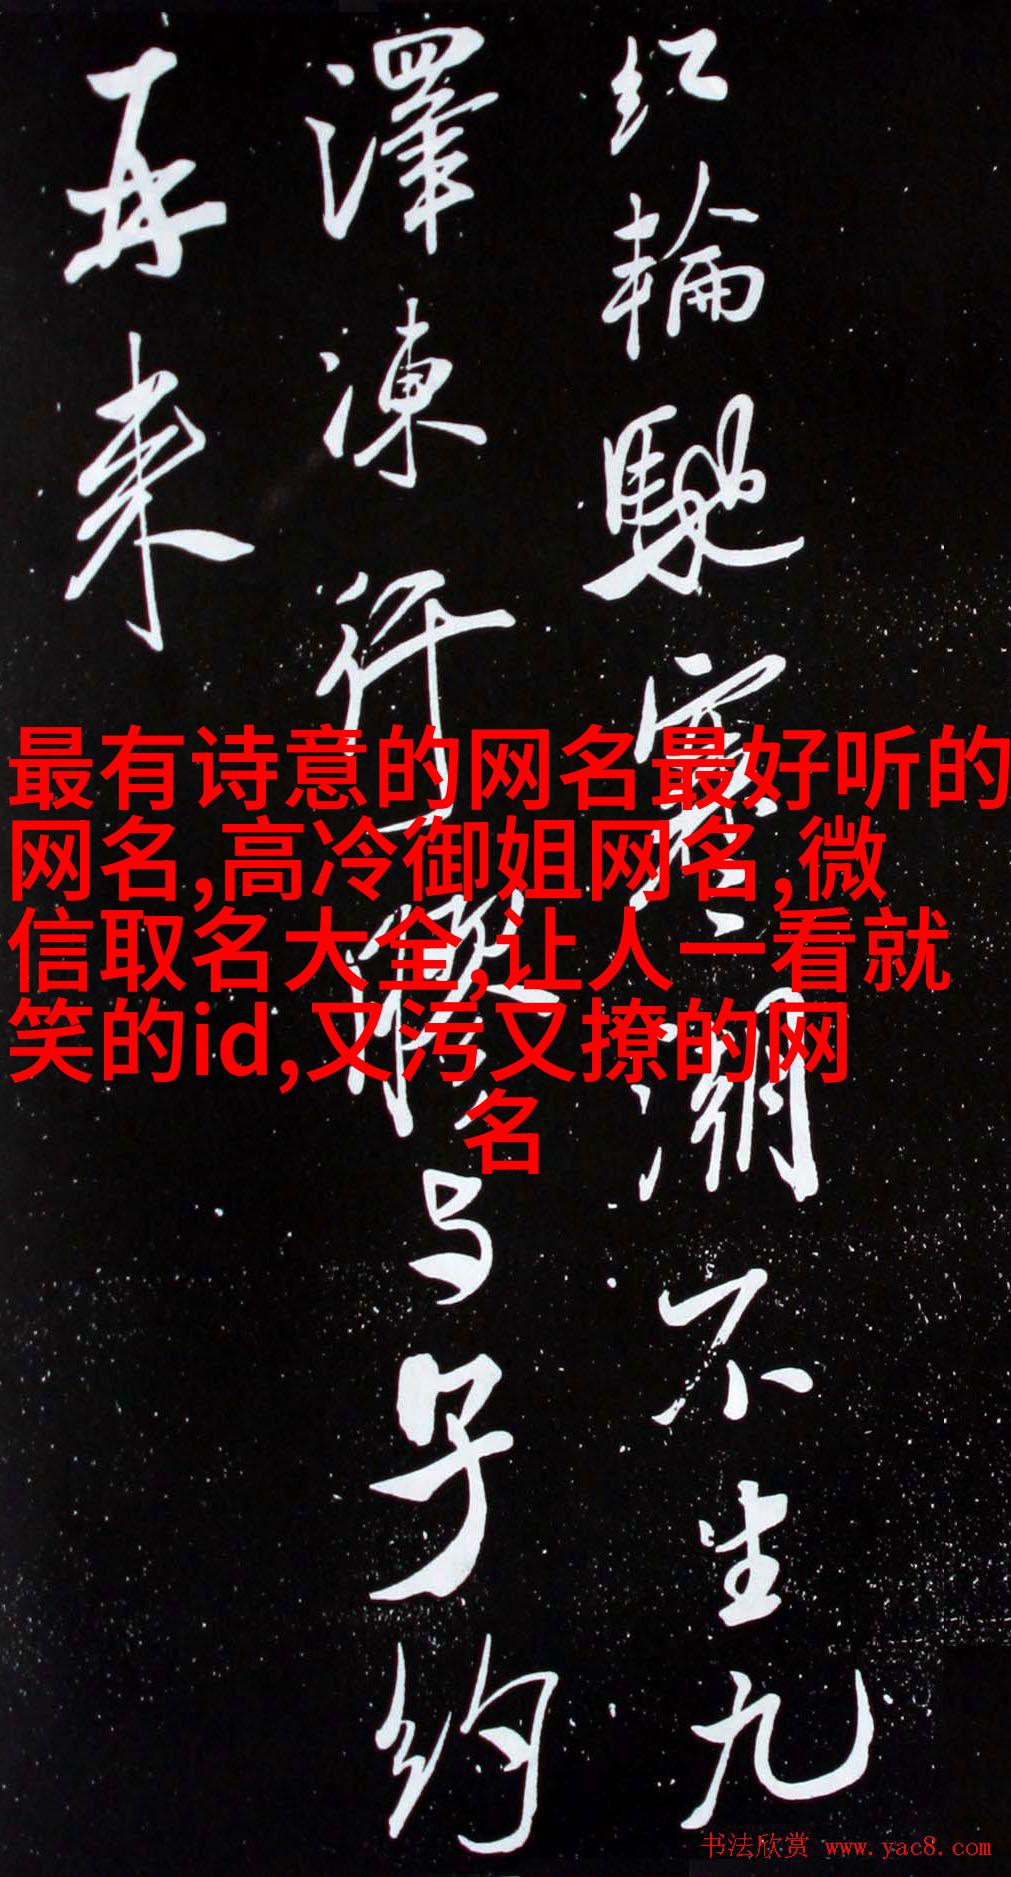 红轮驰寒潮不生九
澤涷行膠与子约
再来
最有诗意的网名最好听的
网名,高冷御姐网名,微
信取名大全,让人一看就
笑的id,又污又撩的网
名
书法欣赏 www.yac8.com